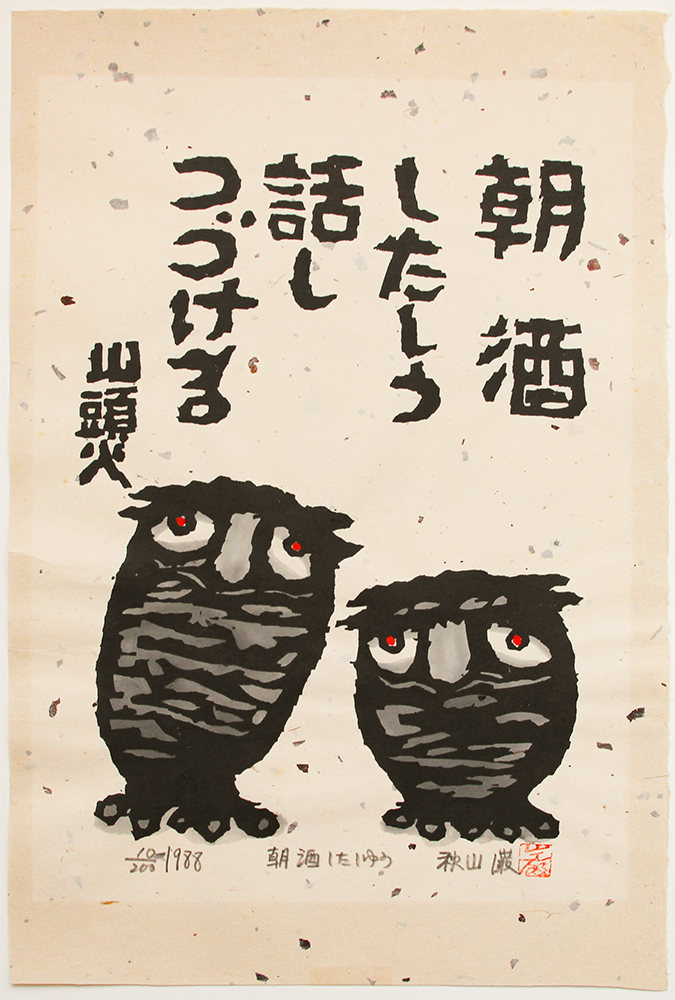 朝酒
したしう
話し
つづける
山頭火
10/200 1988 朝酒したしゆう 秋山 巌